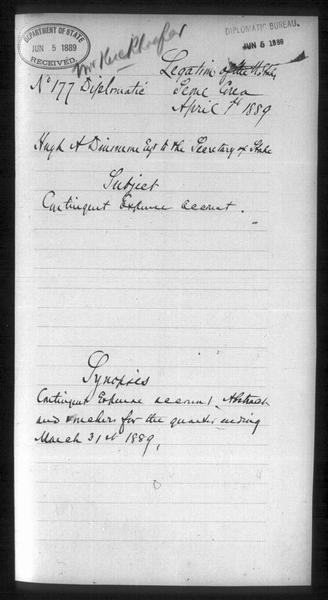 DEPARTMENT OF STATE
JUN 5 1889
RECEIVED
DIPLOMATIC BUREAU.
JUN 5 1889
Legation of the
No 177 Diplomatic Seoul Corea
April 1st 1889
Hugh A Dinsmore Esq to the Secretary of State
Subject
Contingent Expense account.
Synopsis
Contingent Expense account, Abstract
and vouchers for the quarter ending
March 31st 1889,